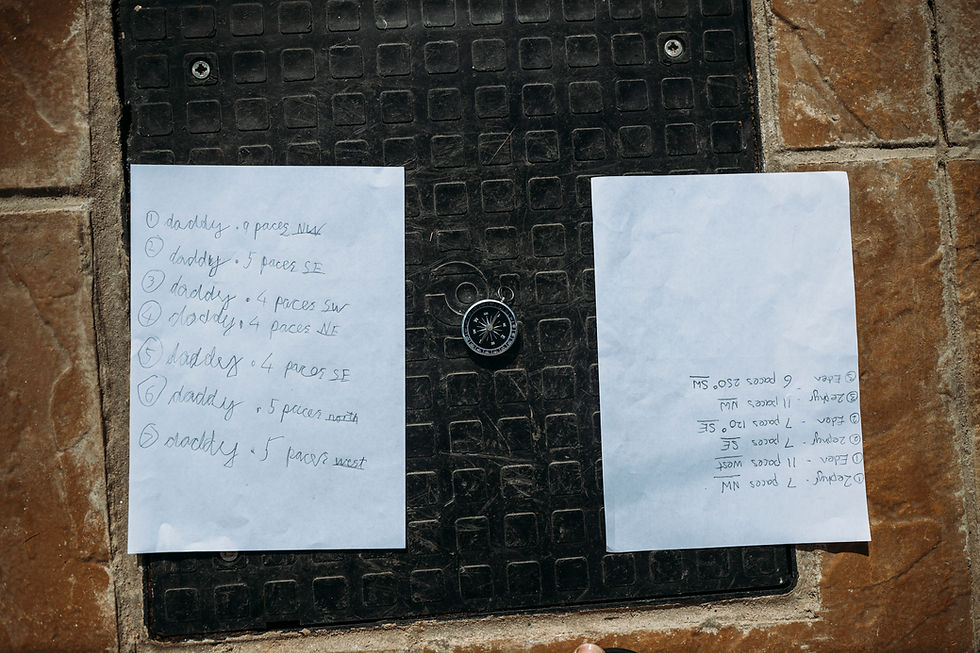 ① daddy . 9 paces NW
② daddy . 5 paces SE
③ daddy . 4 paces SW
④ daddy . 4 paces NE
⑤ daddy . 4 paces SE
⑥ daddy . 5 paces north
daddy . 5 paces west
① Zephyr - 7 paces NW
① Eden - 11 paces West
② Zephyr - 7 paces SE
② Eden - 7 paces 120° SE
③ Zephyr - 11 paces NW
③ Eden - 6 paces 250° SW